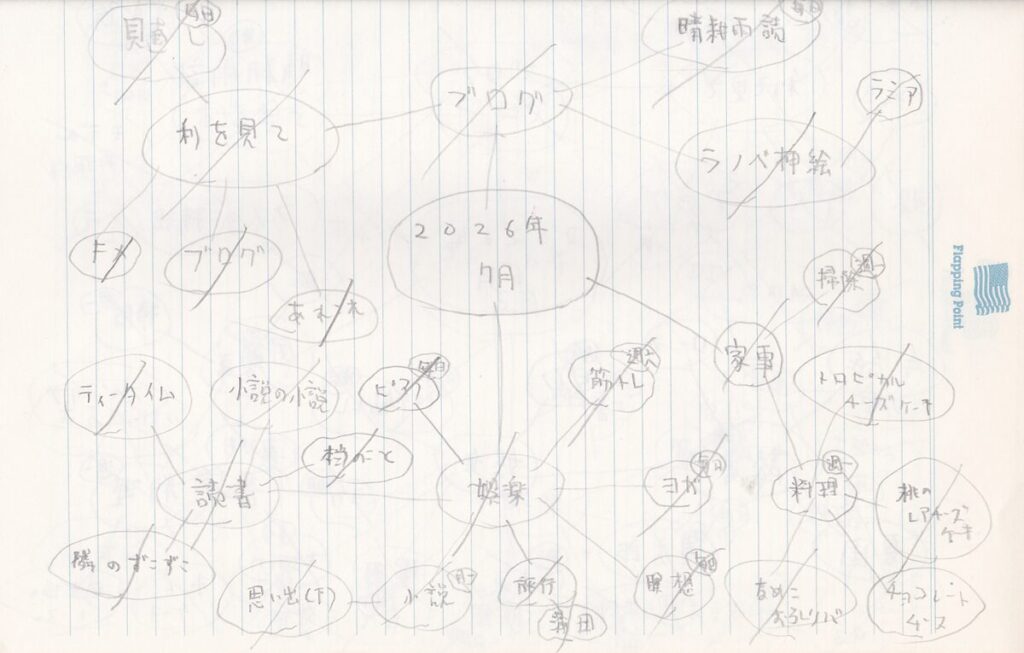 毎日
見直し
毎日
晴耕雨読
ブログ
ラミア
利を見て
ラノベ挿絵
2026年
7月
ドメ
ブログ
週一
掃除
Flapping Point
家事
毎日
ピアノ
週六
筋トレ
ティータイム
小説の小説
トロピカル
チーズケーキ
読書
娯楽
毎日
ヨガ
週一
料理
桃の
レアチーズ
ケーキ
隣のずこずこ
思い出(下)
月一
小説
旅行
蒲田
毎日
瞑想
おろしソバ
チョコレート
チーズ